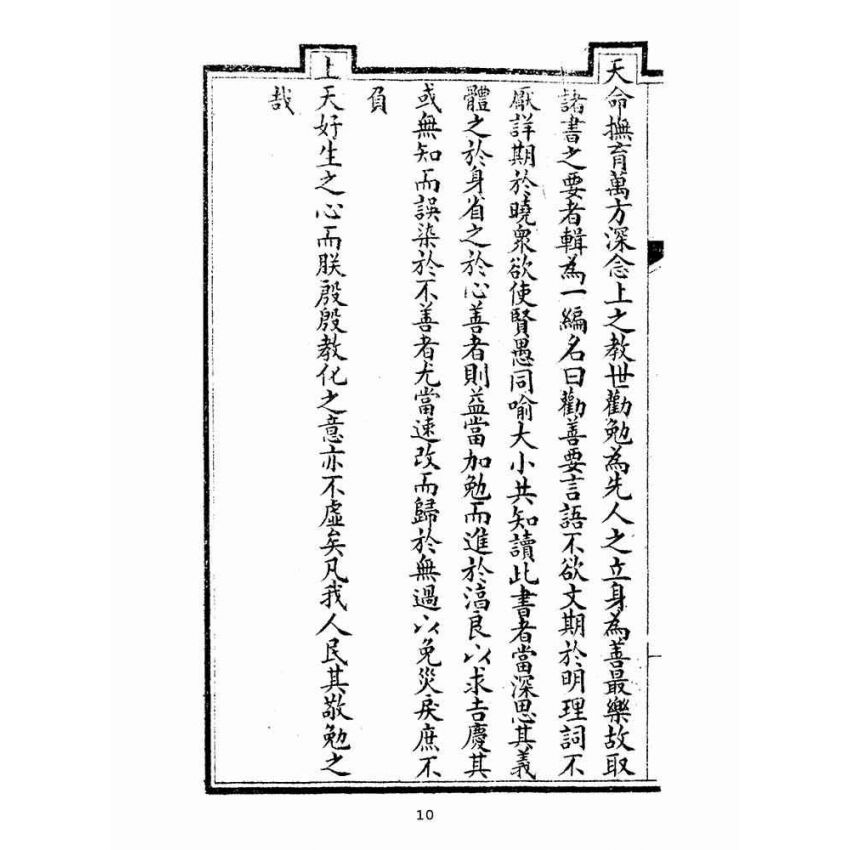 天命撫育萬方深念上之教世勸勉為先人之立身為善最樂故取
諸書之要者輯為一編名曰勸善要言語不欲文期於明理詞不
厭詳期於曉衆欲使賢愚同喻大小共知讀此書者當深思其義
體之於身省之於心善者則益當加勉而進於湻良以求吉慶其
或無知而誤染於不善者尤當速改而歸於無過以免災戾庶不
負
上天好生之心而朕殷殷教化之意亦不虛矣凡我人民其敬勉之
哉
10